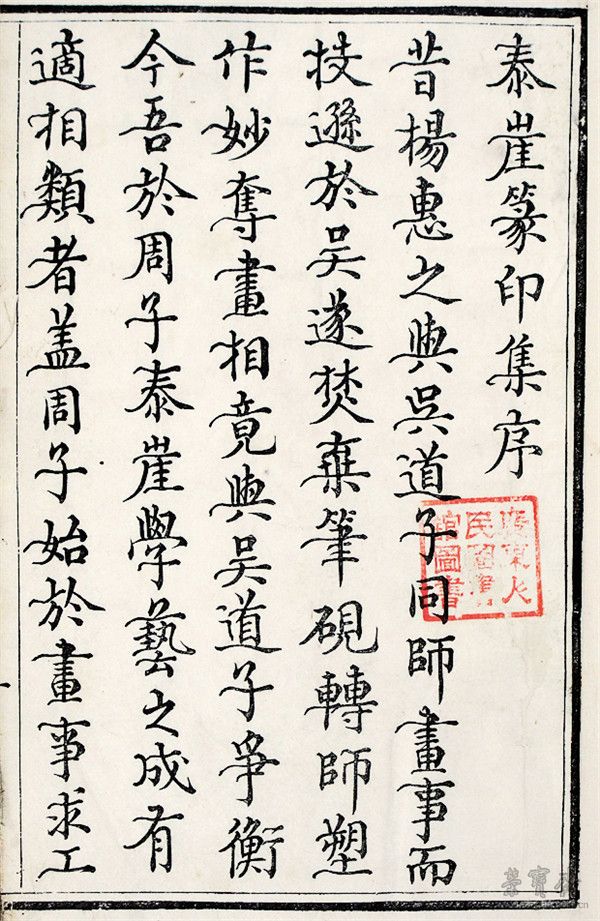 泰崖篆印集序
昔楊惠之與吳道子同師畫事而
技遜於吳遂焚棄筆硯轉師塑
作妙奪畫相竟與吳道子爭衡
今吾於周子泰崖學藝之成有
適相類者盖周子始於畫事求工
廣東人
民
館圖書
榮寶齋